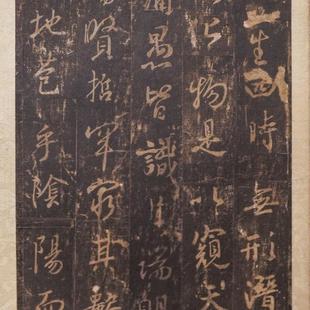 生四時無形潛
化物是以窺天
庸愚皆識其端明
陽賢哲罕窮其數
地苞乎陰陽而